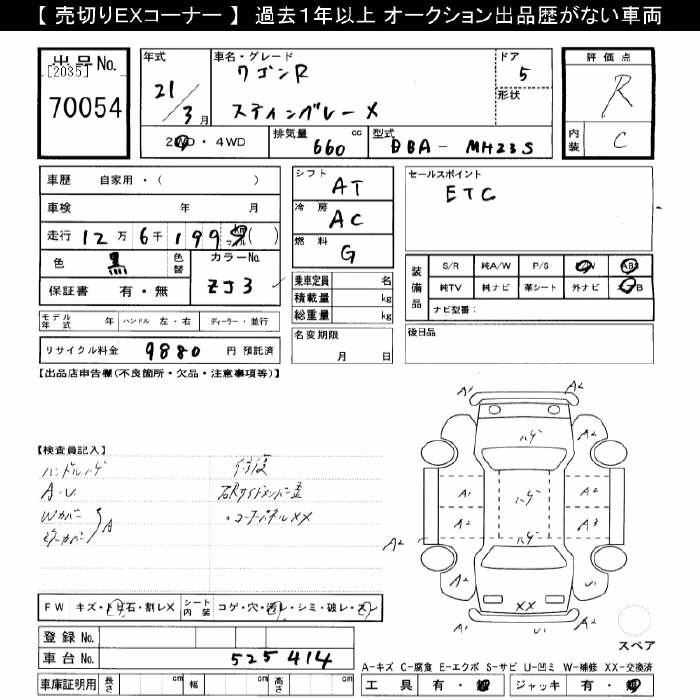 【 売切りEXコーナー 】 過去1年以上 オークション出品歴がない車両
出品No.
[2035]
70054
年式
21/3月
車名・グレード
ワゴンR
スティングレー X
ドア
5
形状
2WD・4WD
排気量 660 cc
型式 DBA- MH23S
評価点
R
内装
C
車歴 自家用・( )
車検 年 月
走行 12万6千199 km マイル( )
色 黒 色替
カラーNo. ZJ3
保証書 有・無
シフト AT
冷房 AC
燃料 G
セールスポイント
ETC
装備品
S/R 純A/W P/S P/W ABS
純TV 純ナビ 革シート 外ナビ
ナビ型番:
乗車定員 名
積載量 kg
総重量 kg
モデル年式 年 ハンドル 左・右 ディーラー・並行
名変期限
月 日
後日品
リサイクル料金 9880 円 預託済
【出品店申告欄(不良箇所・欠品・注意事項等)】
【検査員記入】
ハンドルハゲ
A・U
Wカバー
ミラーカバー } A
修復
右Rサイドメンバー歪
・コーナーパネルXX
A1 A2
ハゲ
A2
A1 ハゲ A2
A2 A3
A2 ハゲ
A2 U1
XX
A1 U1 A2
スペア
FW キズ・トビ石・割レX シート内装 コゲ・穴・汚レ・シミ・破レ・スレ
登録No.
車台No. 525414
車庫証明用 長さ cm 幅 cm 高さ cm
A-キズ C-腐食 E-エクボ S-サビ U-凹ミ W-補修 XX-交換済
工具 有・無 ジャッキ 有・無